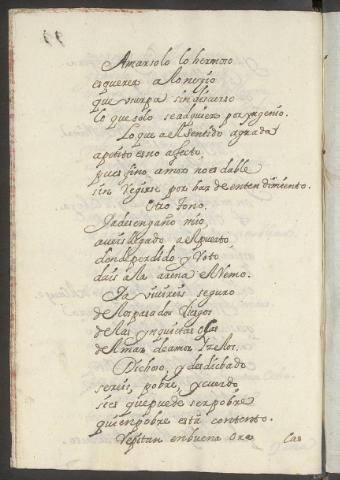 Amar solo lo hermoso
es querer
que usurpa sin discurso
lo que solo se adquiere por yngenio.
Lo que al sentido agrada
apetito es no afecto,
pues fino amor no es dable
sin regirse por luz de entendimiento.
Otro tono.
Ya desengaño mio
aveis llegado al puerto
donde perdido y roto
dais a la arena el remo.
Ya vivireis seguro
de los pasados riesgos
de las ynquietas olas
del mar de amor y zelos.
Dichoso, y desdichado
sereis, pobre, y cuerdo
si es que puede ser pobre
quien pobre está contento.
Repitan en buena ora
Las